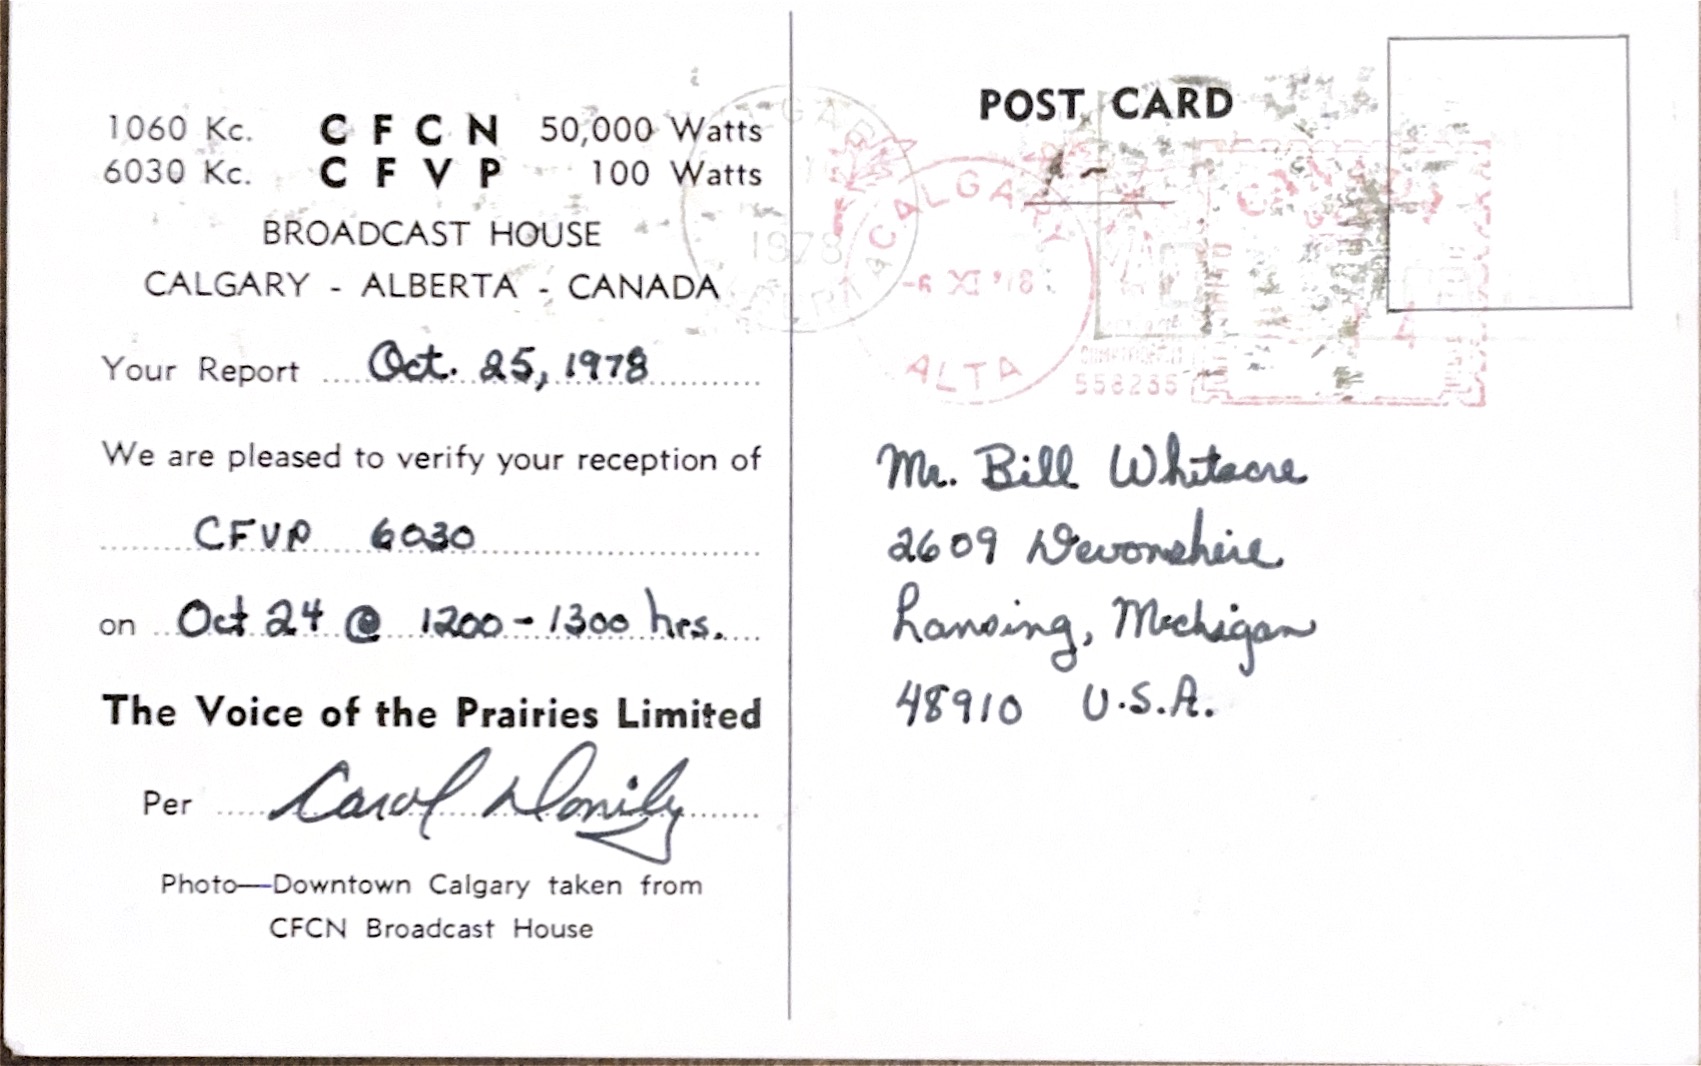 1060 Kc. CFCN 50,000 Watts
6030 Kc. CFVP 100 Watts
BROADCAST HOUSE
CALGARY - ALBERTA - CANADA
Your Report Oct. 25, 1978
We are pleased to verify your reception of
CFVP 6030
on Oct 24 @ 1200-1300 hrs.
The Voice of the Prairies Limited
Per Carol
Photo—Downtown Calgary taken from
CFCN Broadcast House
POST CARD
1978
CALGARY
-6 XI '78
ALTA
558235
Mr. Bill Whitacre
2609 Devonshire
Lansing, Michigan
48910 U.S.A.